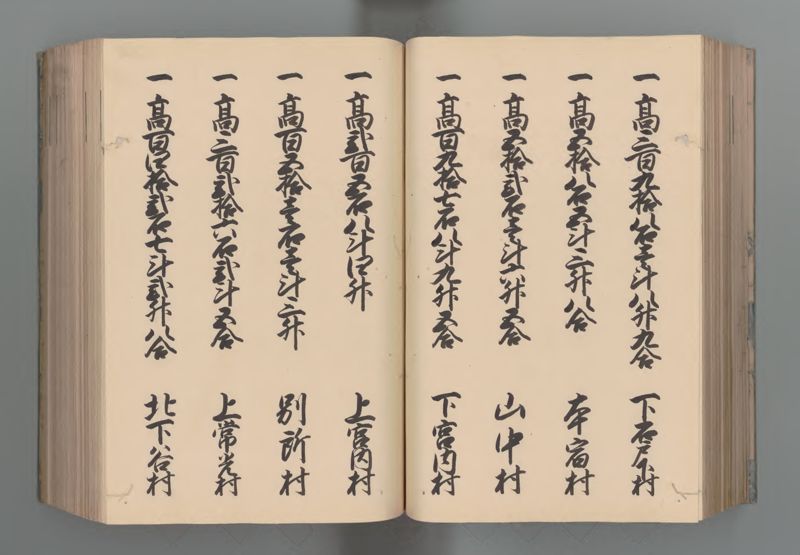 一 高三百九拾八石壱斗八升九合 下石戸下村
一 高五拾八石五斗三升八合 本宿村
一 高五拾弐石壱斗六升五合 山中村
一 高百九拾七石八斗九升五合 下宮内村
一 高弐百五石八斗四升 上宮内村
一 高百五拾壱石壱斗三升 別所村
一 高三百弐拾六石弐斗五合 上常光村
一 高百四拾弐石七斗弐升八合 北下谷村